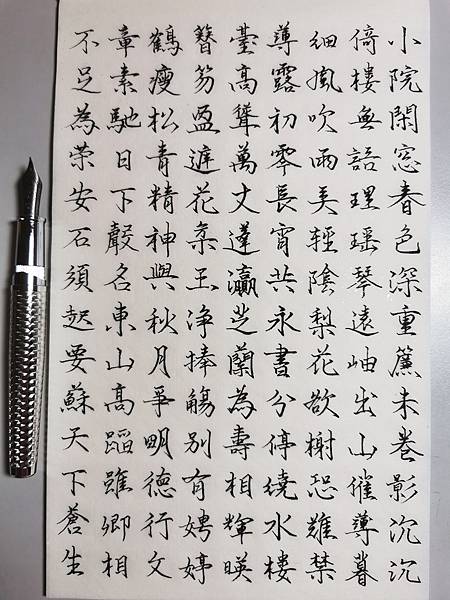 小院閑窓春色深重簾未卷影沉沉
倚樓無語理瑶琴遠岫出山催薄暮
細風吹雨美輕陰梨花欲榭恐難禁
薄露初零長宵共永書分停繞水樓
臺高聳萬丈蓬瀛芝蘭為壽相輝暎
簪笏盈花柔玉净捧觴別有娉婷
鶴瘦松青精神與秋月爭明德行文
章素馳日下聲名東山高蹈雖卿相
不足為荣安石須起要蘇天下蒼生